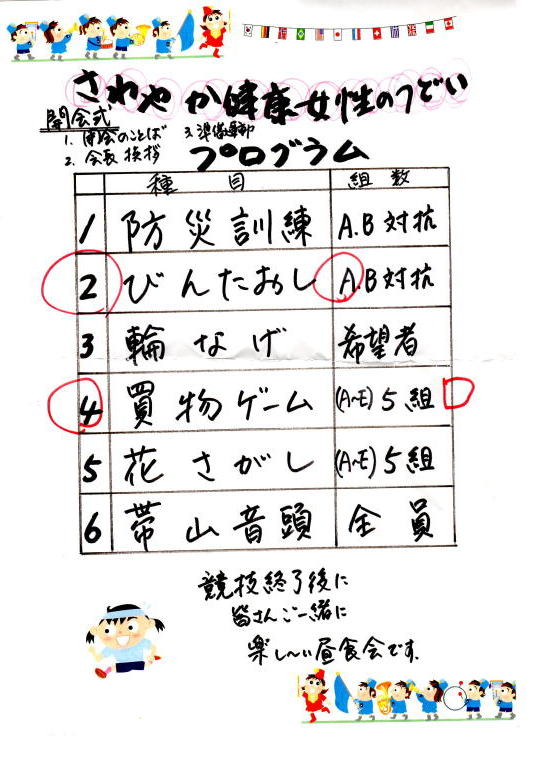 さわやか健康女性のつどい
開会式
1. 開会のことば 3. 準備運動
2. 会長挨拶
プログラム
種目 組数
1 防災訓練 A.B対抗
2 びんたおし A.B対抗
3 輪なげ 希望者
4 買物ゲーム (A~E)5組
5 花さがし (A~E)5組
6 帯山音頭 全員
競技終了後に
皆さんご一緒に
楽し~い昼食会です.